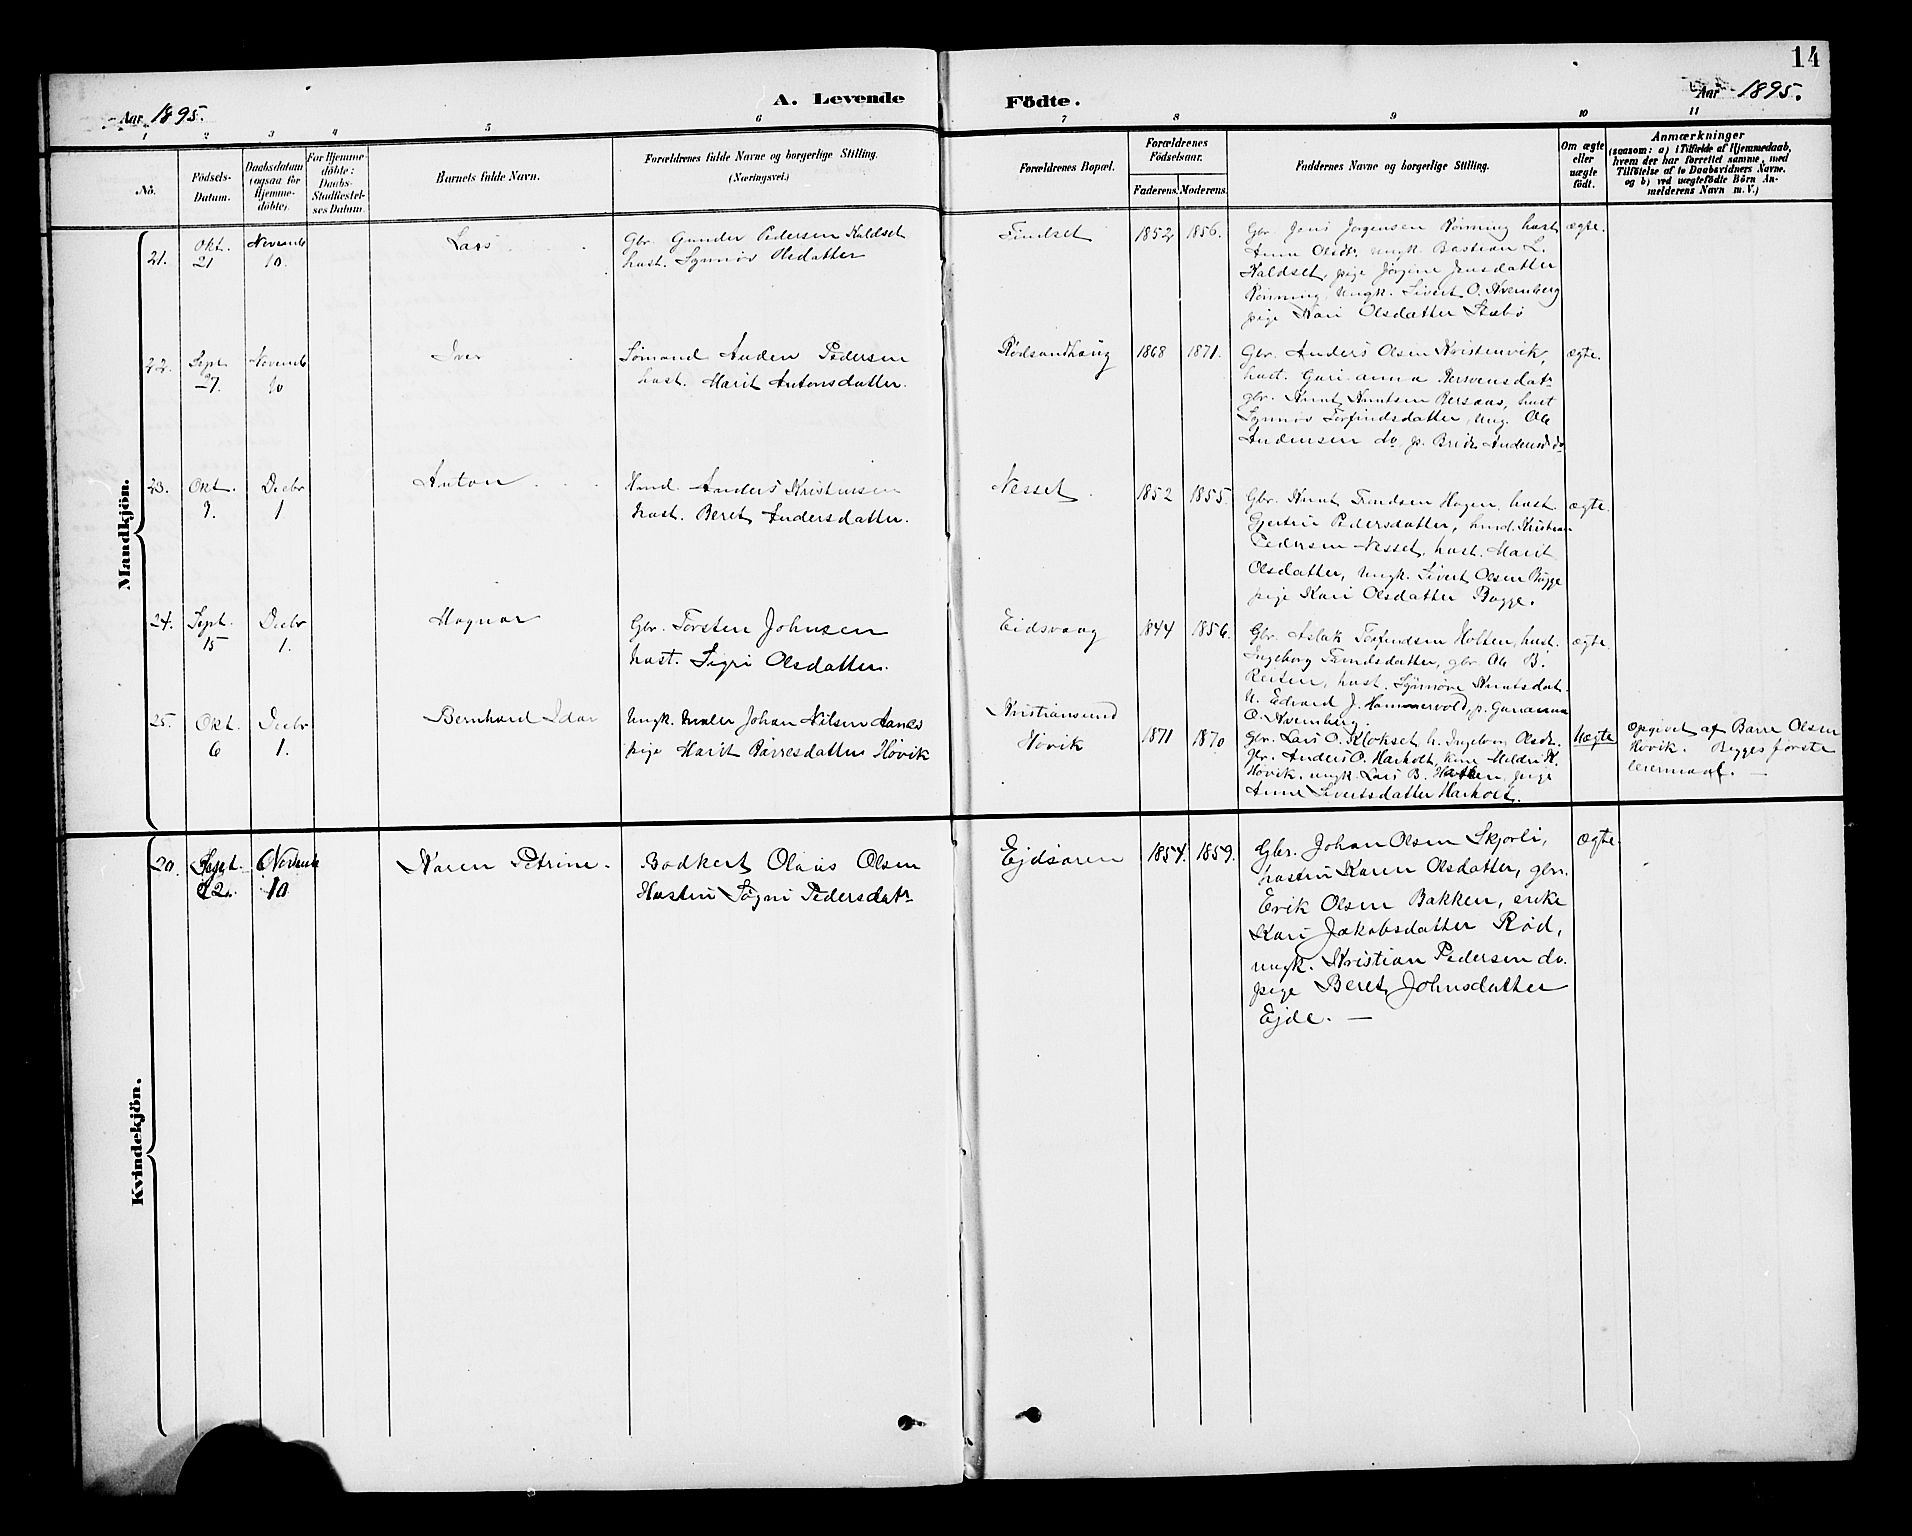 14
Aar 1895.
A. Levende Födte.
Aar 1895.
1 2 3 4 5 6 7 8 9 10 11
No.
Födsels-
Datum.
Daabsdatum
(ogsaa for
Hjemme-
döbte).
For Hjemme-
döbte:
Daabs-
Stadfæstel-
ses Datum.
Barnets fulde Navn.
Forældrenes fulde Navne og borgerlige Stilling.
(Næringsvei.)
Forældrenes Bopæl.
Forældrenes
Födselsaar.
Faderens. Moderens.
Faddernes Navne og borgerlige Stilling.
Om ægte
eller
uægte
födt.
Anmærkninger
(saasom: a) i Tilfælde af Hjemmedaab,
hvem der har forrettet samme, med
Tilföielse af to Daabsvidners Navne.
og b) ved uægtefödte Börn An-
melderens Navn m. V.)
Mandkjön.
21.
Okt.
21
Novemb
10.
Lars
Gbr. Gunder Pedersen Kaldset
hust. Synnöv Oledatter
Tindset
1852 1856.
Gbr. Jens Jörgensen Rönning hust
Anne Olsdt. ungk. Bastian L.
Kaldset, pige Jörgine Jensdatter
Rönning, Ungk. Sivert O. Kvernberg
pige Kari Olsdatter Stubö
ægte.
22.
Sept
27
Novemb
10
Iver
Sömand Anden Pedersen
hust. Marit Antonsdatter.
Rödsandhaug
1868 1871.
Gbr. Anders Olsen Kristenvik,
hust. Gurianna
gbr. Knut Knutsen Bersaas, hust
Synnöv Torfindsdatter, ung. Ole
Andersen do p.
ægte.
23.
Okt.
9.
Decbr
1
Anton
Hmd Anders Kristensen
hust. Beret Andersdatter.
Nesset.
1852 1855.
Gbr. Knut Trondsen Hagen, hust
Gjertru Pedersdatter, hmd. Kristian
Pedersen Nesset, hust. Marit
Olsdatter, ungk. Sivert Olsen Bugge
pige Kari Olsdatter Bugge.
ægte.
24.
Sept.
15
Decbr
1.
Magnar
Gbr. Torsten Johnsen
hust. Sigri Olsdatter.
Eidsvaag
1844 1856.
Gbr. Aslak Torfindsen Holten, hust.
Ingeborg Trondsdatter, gbr. Ole B.
Reiten, hust. Synnöve Knutsdat.
U. Edvard J. Hammervold, p. Gurianna
O. Kvernberg.
ægte.
25.
Okt.
6
Decbr
1.
Bernhard Idar
Ungk. maler Johan Nilsen Aanes
pige Marit Barresdatter Hövik
Kristiansund
Hövik
1871 1870
gbr. Lars O. Klokset, h. Ingeborg Olsdt.
Gbr. Anders O. Harholt, kone Mildri K.
Hövik, ungk. Lars B. , pige
Anne Sivertsdatter Harholt.
Uægte
Opgivet af Barre Olsen
Hövik. Begges förste
leiermaal. —
Kvindekjön.
20.
Sept.
22.
Novemb
10
Karen Petrine.
Bødkert Olaus Olsen
Hustru Sigri Pedersdatr
Ejdsören
1854. 1859.
Gbr. Johan Olsen Skjorli,
hustru Karen Olsdatter, gbr.
Erik Olsen Bakken, enke
Kari Jakobsdatter Röd,
ungk. Kristian Pedersen do.
pige Beret Johnsdatter
Ejde. —
Ægte